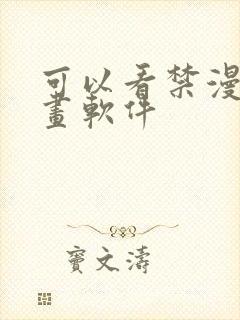 可以看禁漫
畫軟件
竇文濤